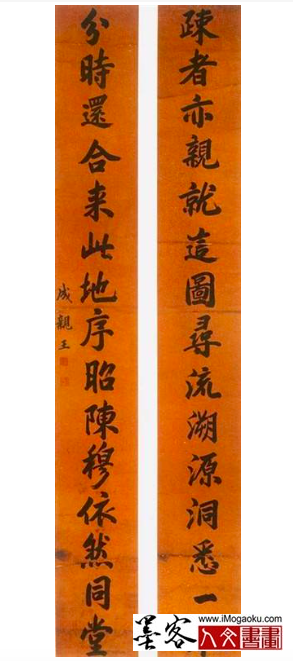 疎者亦親就這圖尋流溯源洞悉一
分時還合来此地序昭陳穆依然同堂
成親王
www.iMogaoku.com
墨客
人文書畫